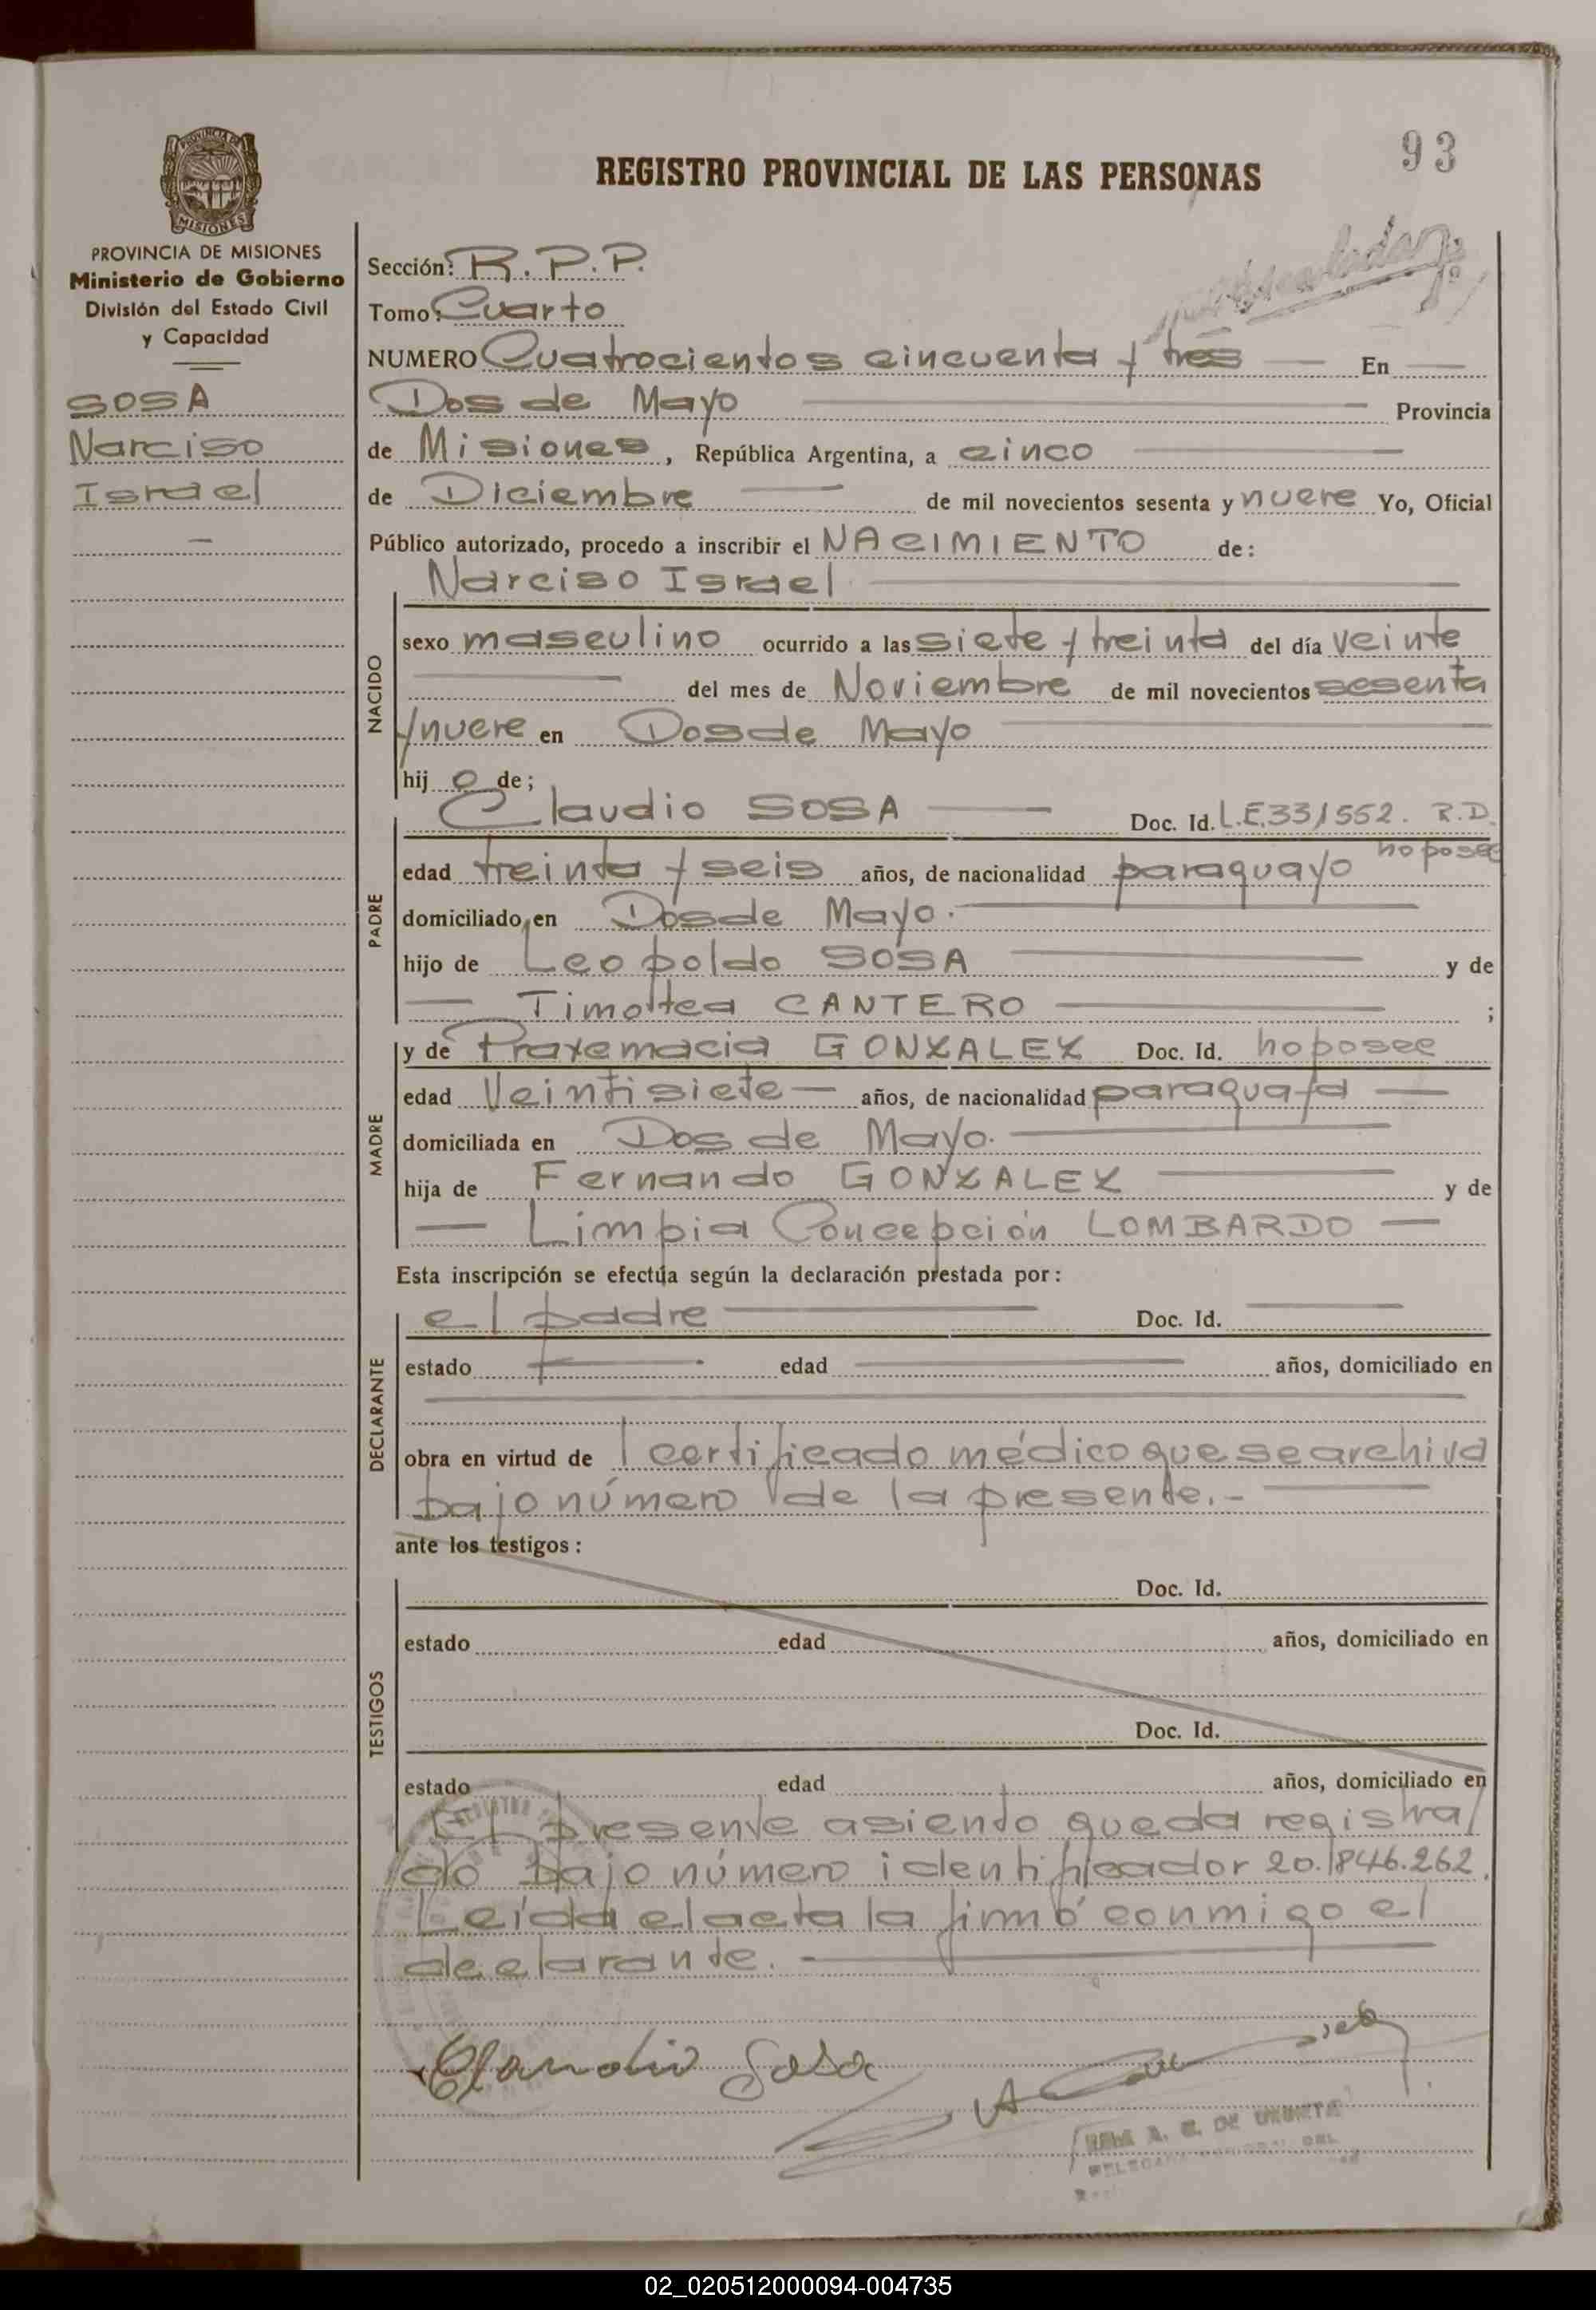 93
REGISTRO PROVINCIAL DE LAS PERSONAS
PROVINCIA DE MISIONES
Ministerio de Gobierno
División del Estado Civil
y Capacidad
SOSA
Narciso
Israel
Sección: R.P.P.
Tomo: Cuarto
NUMERO Cuatrocientos cincuenta y tres En
Dos de Mayo Provincia
de Misiones, República Argentina, a cinco
de Diciembre de mil novecientos sesenta y nueve Yo, Oficial
Público autorizado, procedo a inscribir el NACIMIENTO de:
Narciso Israel
NACIDO
sexo masculino ocurrido a las siete y treinta del día veinte
del mes de Noviembre de mil novecientos sesenta
y nueve en Dos de Mayo
hijo de;
Claudio SOSA Doc. Id. L.E.331552. R.D.
no posee
PADRE
edad treinta y seis años, de nacionalidad paraguayo
domiciliado en Dos de Mayo.
hijo de Leopoldo SOSA y de
Timotea CANTERO ;
y de Praxemacia GONZALEZ Doc. Id. no posee
MADRE
edad Veintisiete años, de nacionalidad paraguaya
domiciliada en Dos de Mayo.
hija de Fernando GONZALEZ y de
Limpia Concepción LOMBARDO
Esta inscripción se efectúa según la declaración prestada por:
el padre Doc. Id.
DECLARANTE
estado edad años, domiciliado en
obra en virtud de 1 certificado médico que se archiva
bajo número de la presente.-
ante los testigos:
Doc. Id.
TESTIGOS
estado edad años, domiciliado en
Doc. Id.
estado edad años, domiciliado en
El presente asiento queda registra/
do bajo número identificador 20.846.262.
Leída el acta la firmó conmigo el
declarante.
Claudio Sosa
02_020512000094-004735